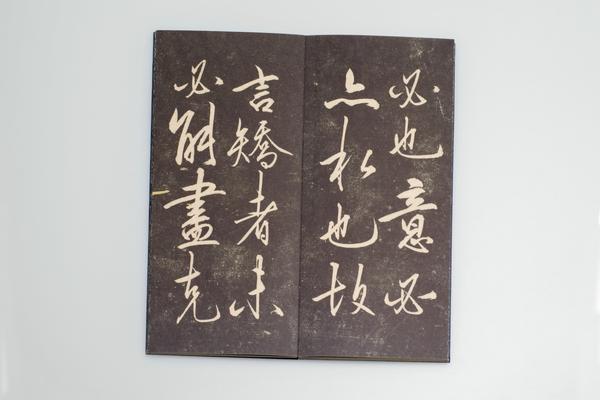 必也意必
亦私也故
言矯者未
必能盡克